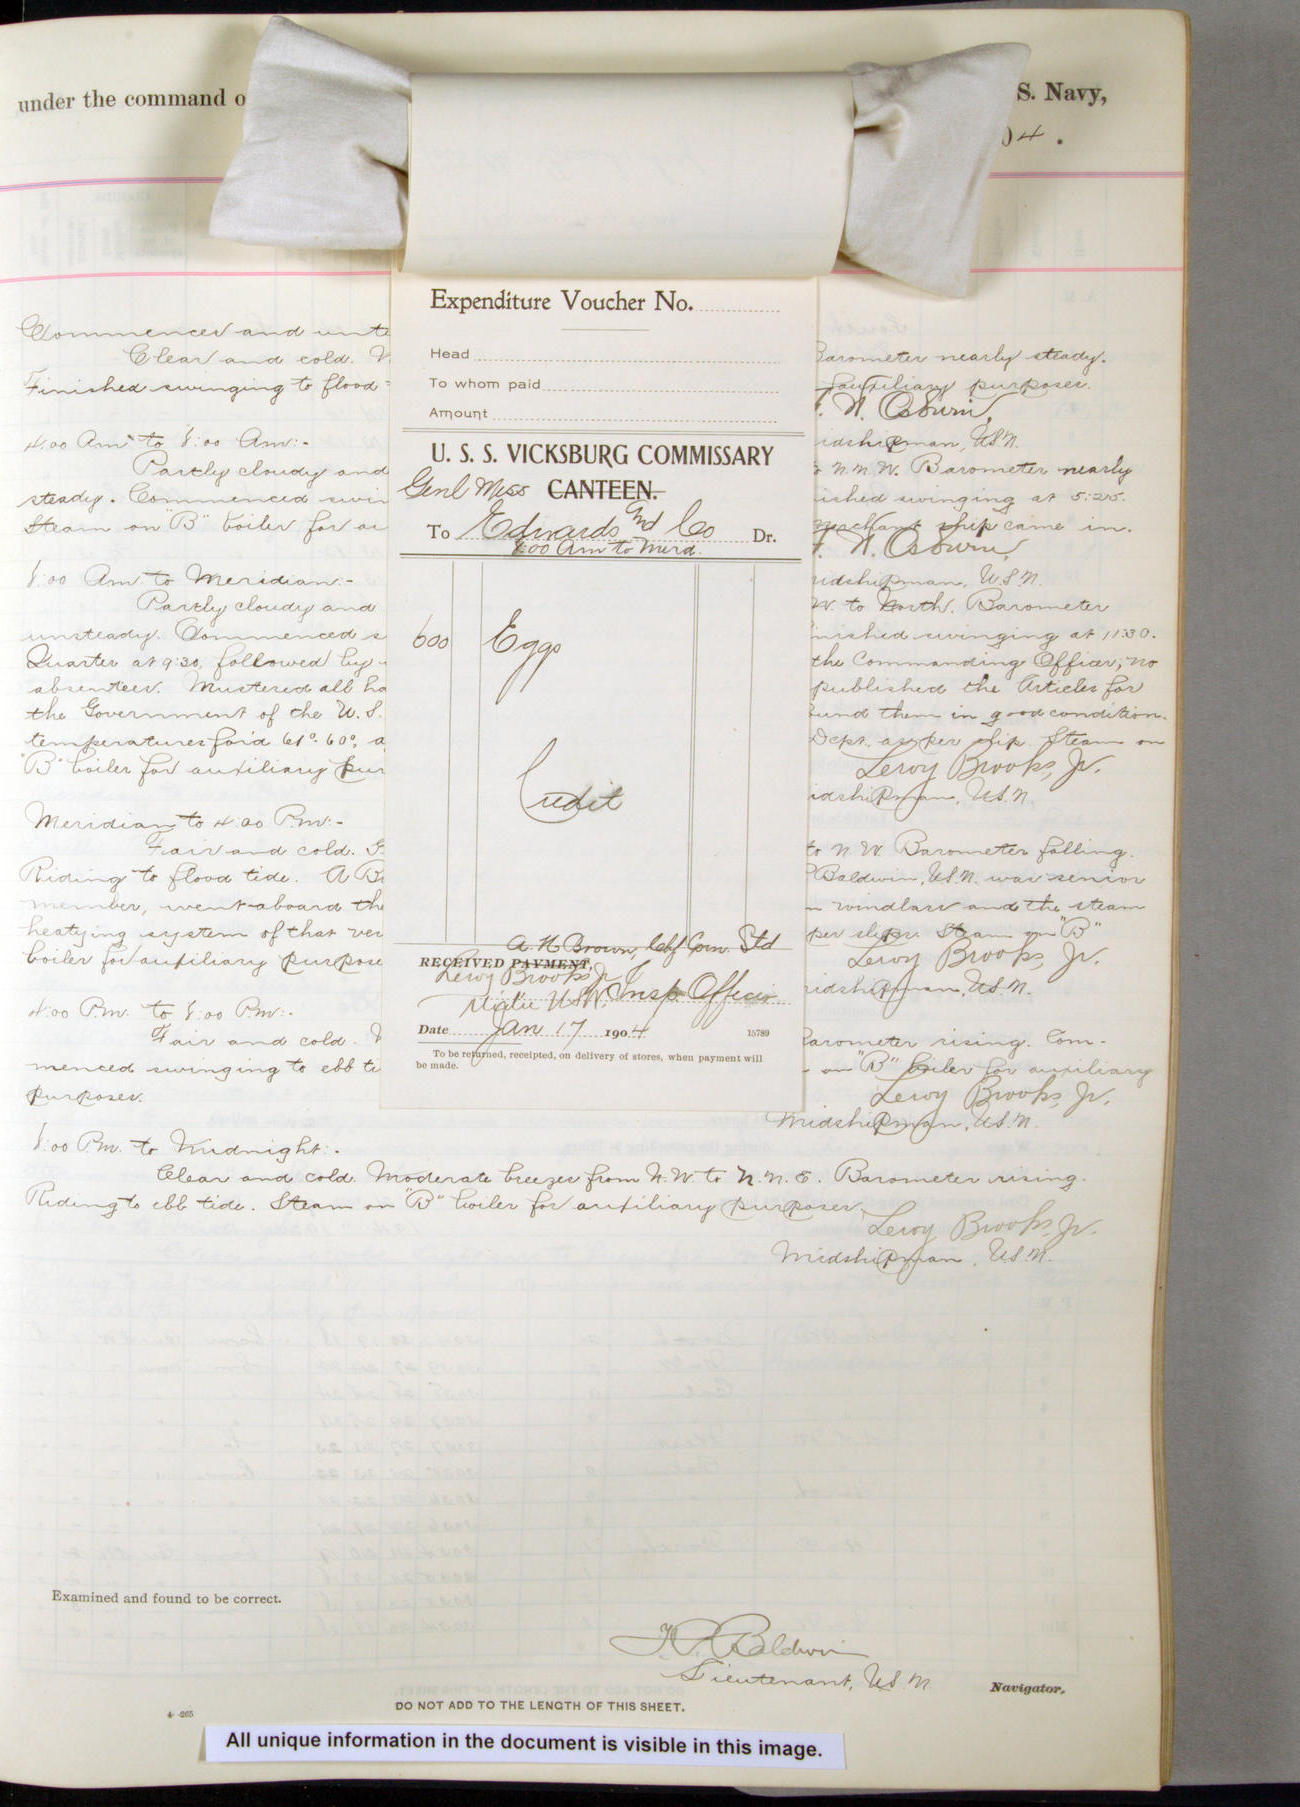 under the command o
S. Navy,
04.
Commenced and
Clear and cold.
Barometer nearly steady.
Finished swinging to flood
auxiliary purposes.
Midshipman, USN.
4:00 Am to 8:00 Am:-
Partly cloudy and
N.N.W. Barometer nearly
steady. Commenced
finished swinging at 5:25.
Steam on "B" boiler for
merchant ship came in.
Midshipman, U.S.N.
8:00 Am. to Meridian:-
Partly cloudy and
W. to North. Barometer
unsteady. Commenced s
finished swinging at 11:30.
Quarter at 9:30, followed by
the Commanding Officer; no
absentees. Mustered all ha
published the Articles for
the Government of the U.S.
found them in good condition.
temperatures for'd 61°. 60°, a
Dept. as per slip. Steam on
"B" boiler for auxiliary pur
Leroy Brooks, Jr.
Midshipman, U.S.N.
Meridian to 4:00 P.m:-
Fair and cold.
to N.W. Barometer falling.
Riding to flood tide. A Bo
Baldwin, U.S.N. was senior
member, went aboard the
windlass and the steam
heating system of that ves
per slip. Steam on "B"
boiler for auxiliary purpose
Leroy Brooks, Jr.
Midshipman, U.S.N.
4:00 P.m. to 8:00 P.m:-
Fair and cold.
Barometer rising. Com-
menced swinging to ebb ti
on "B" boiler for auxiliary
purposes.
Leroy Brooks, Jr.
Midshipman, U.S.N.
8:00 P.m. to Midnight:-
Clear and cold. Moderate breezes from N.W. to N.N.E. Barometer rising.
Riding to ebb tide. Steam on "B" boiler for auxiliary purposes.
Leroy Brooks, Jr.
Midshipman, U.S.N.
Expenditure Voucher No.
Head
To whom paid
Amount
U. S. S. VICKSBURG COMMISSARY
Genl Mess CANTEEN.
To Edwards and Co Dr.
8:00 Am to Merd.
600 Eggs
Credit
A. N. Brown, Com. Std
RECEIVED PAYMENT,
Leroy Brooks Jr
U.S.N. Insp. Officer
Date Jan 17 1904
15789
To be returned, receipted, on delivery of stores, when payment will
be made.
Examined and found to be correct.
Baldwin
Lieutenant, U.S.N.
Navigator.
DO NOT ADD TO THE LENGTH OF THIS SHEET.
4-265
All unique information in the document is visible in this image.